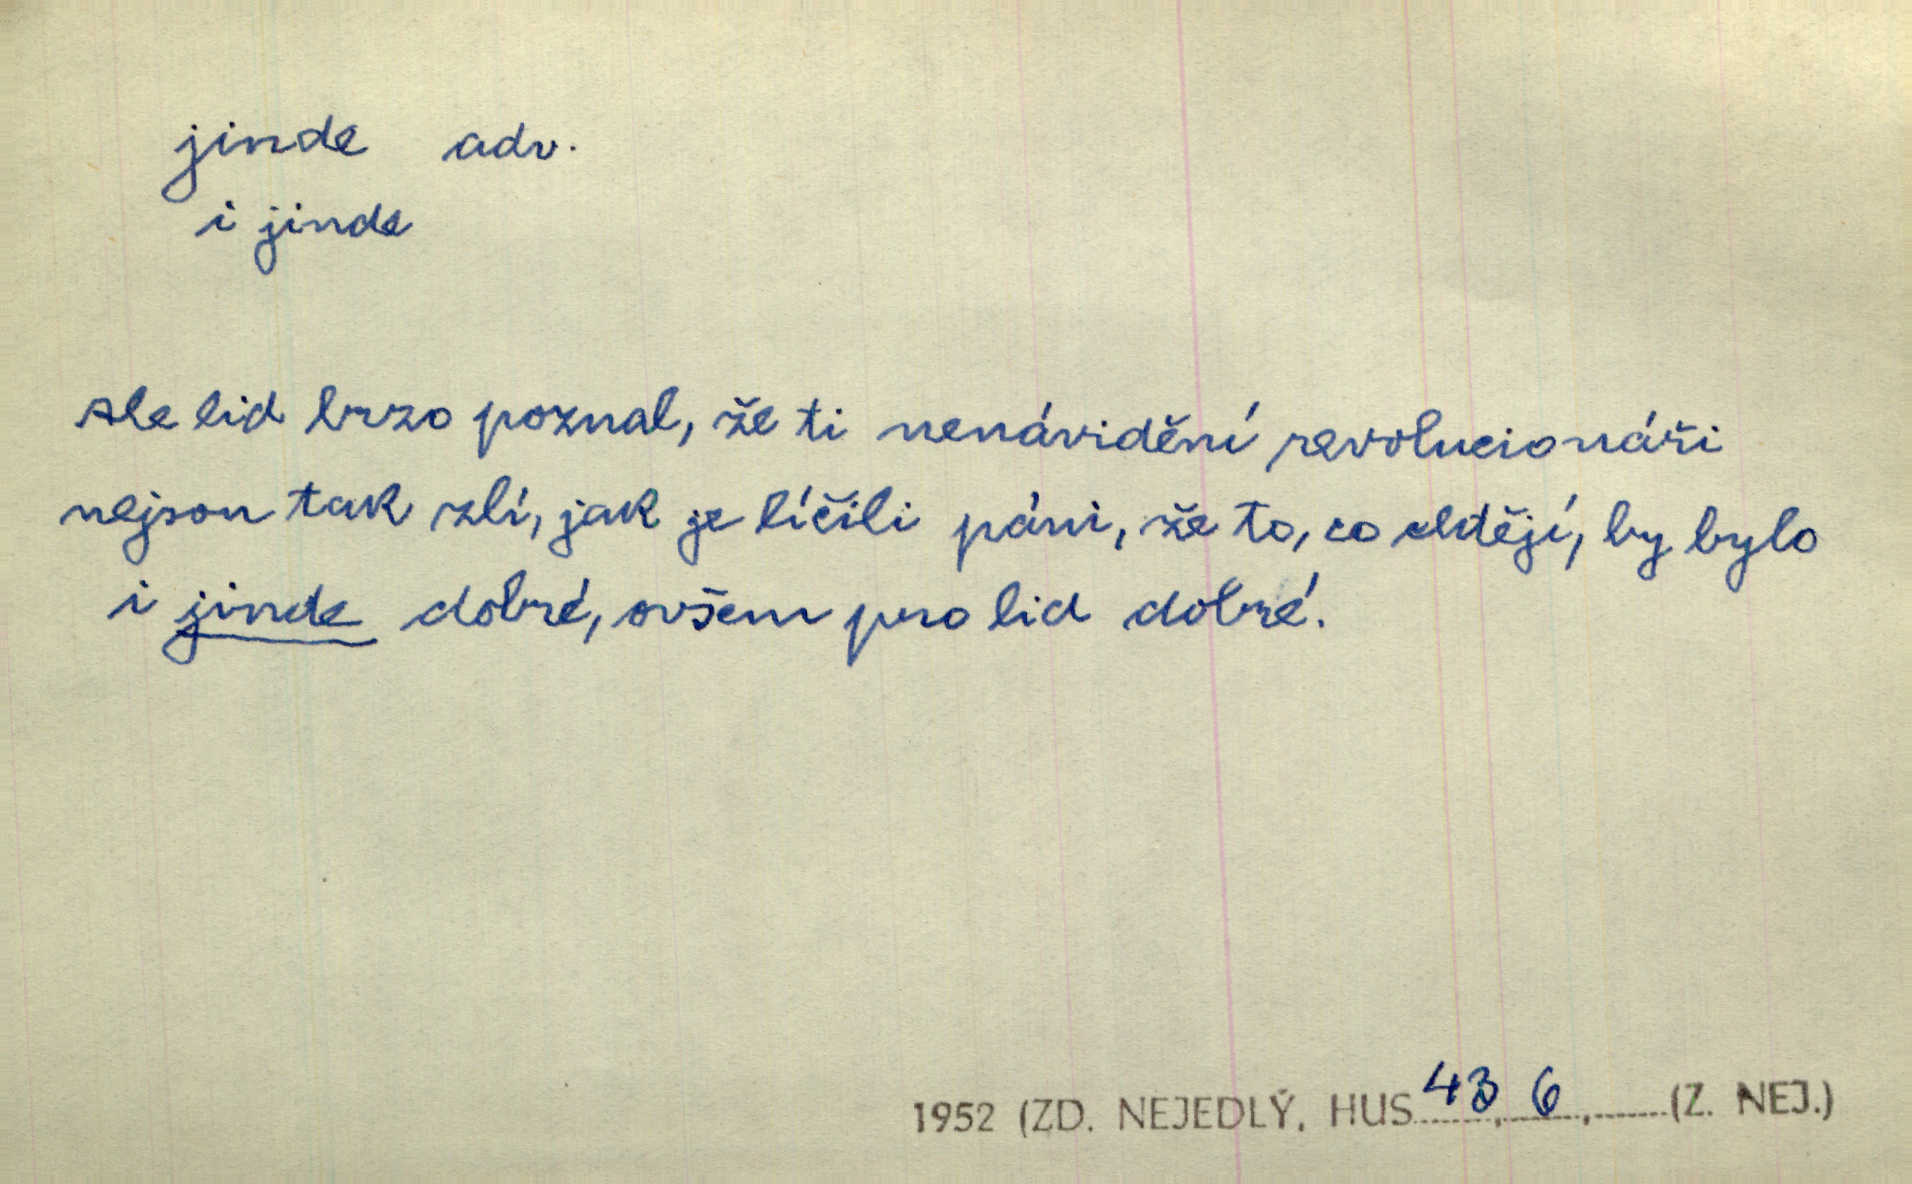 jinde adv.
i jinde
Ale lid brzo poznal, že ti nenávidění revolucionáři
nejsou tak zlí, jak je líčili páni, že to, co chtějí, by bylo
i jinde dobré, ovšem pro lid dobré.
1952 (ZD. NEJEDLÝ, HUS 43, 6, (Z. NEJ.)